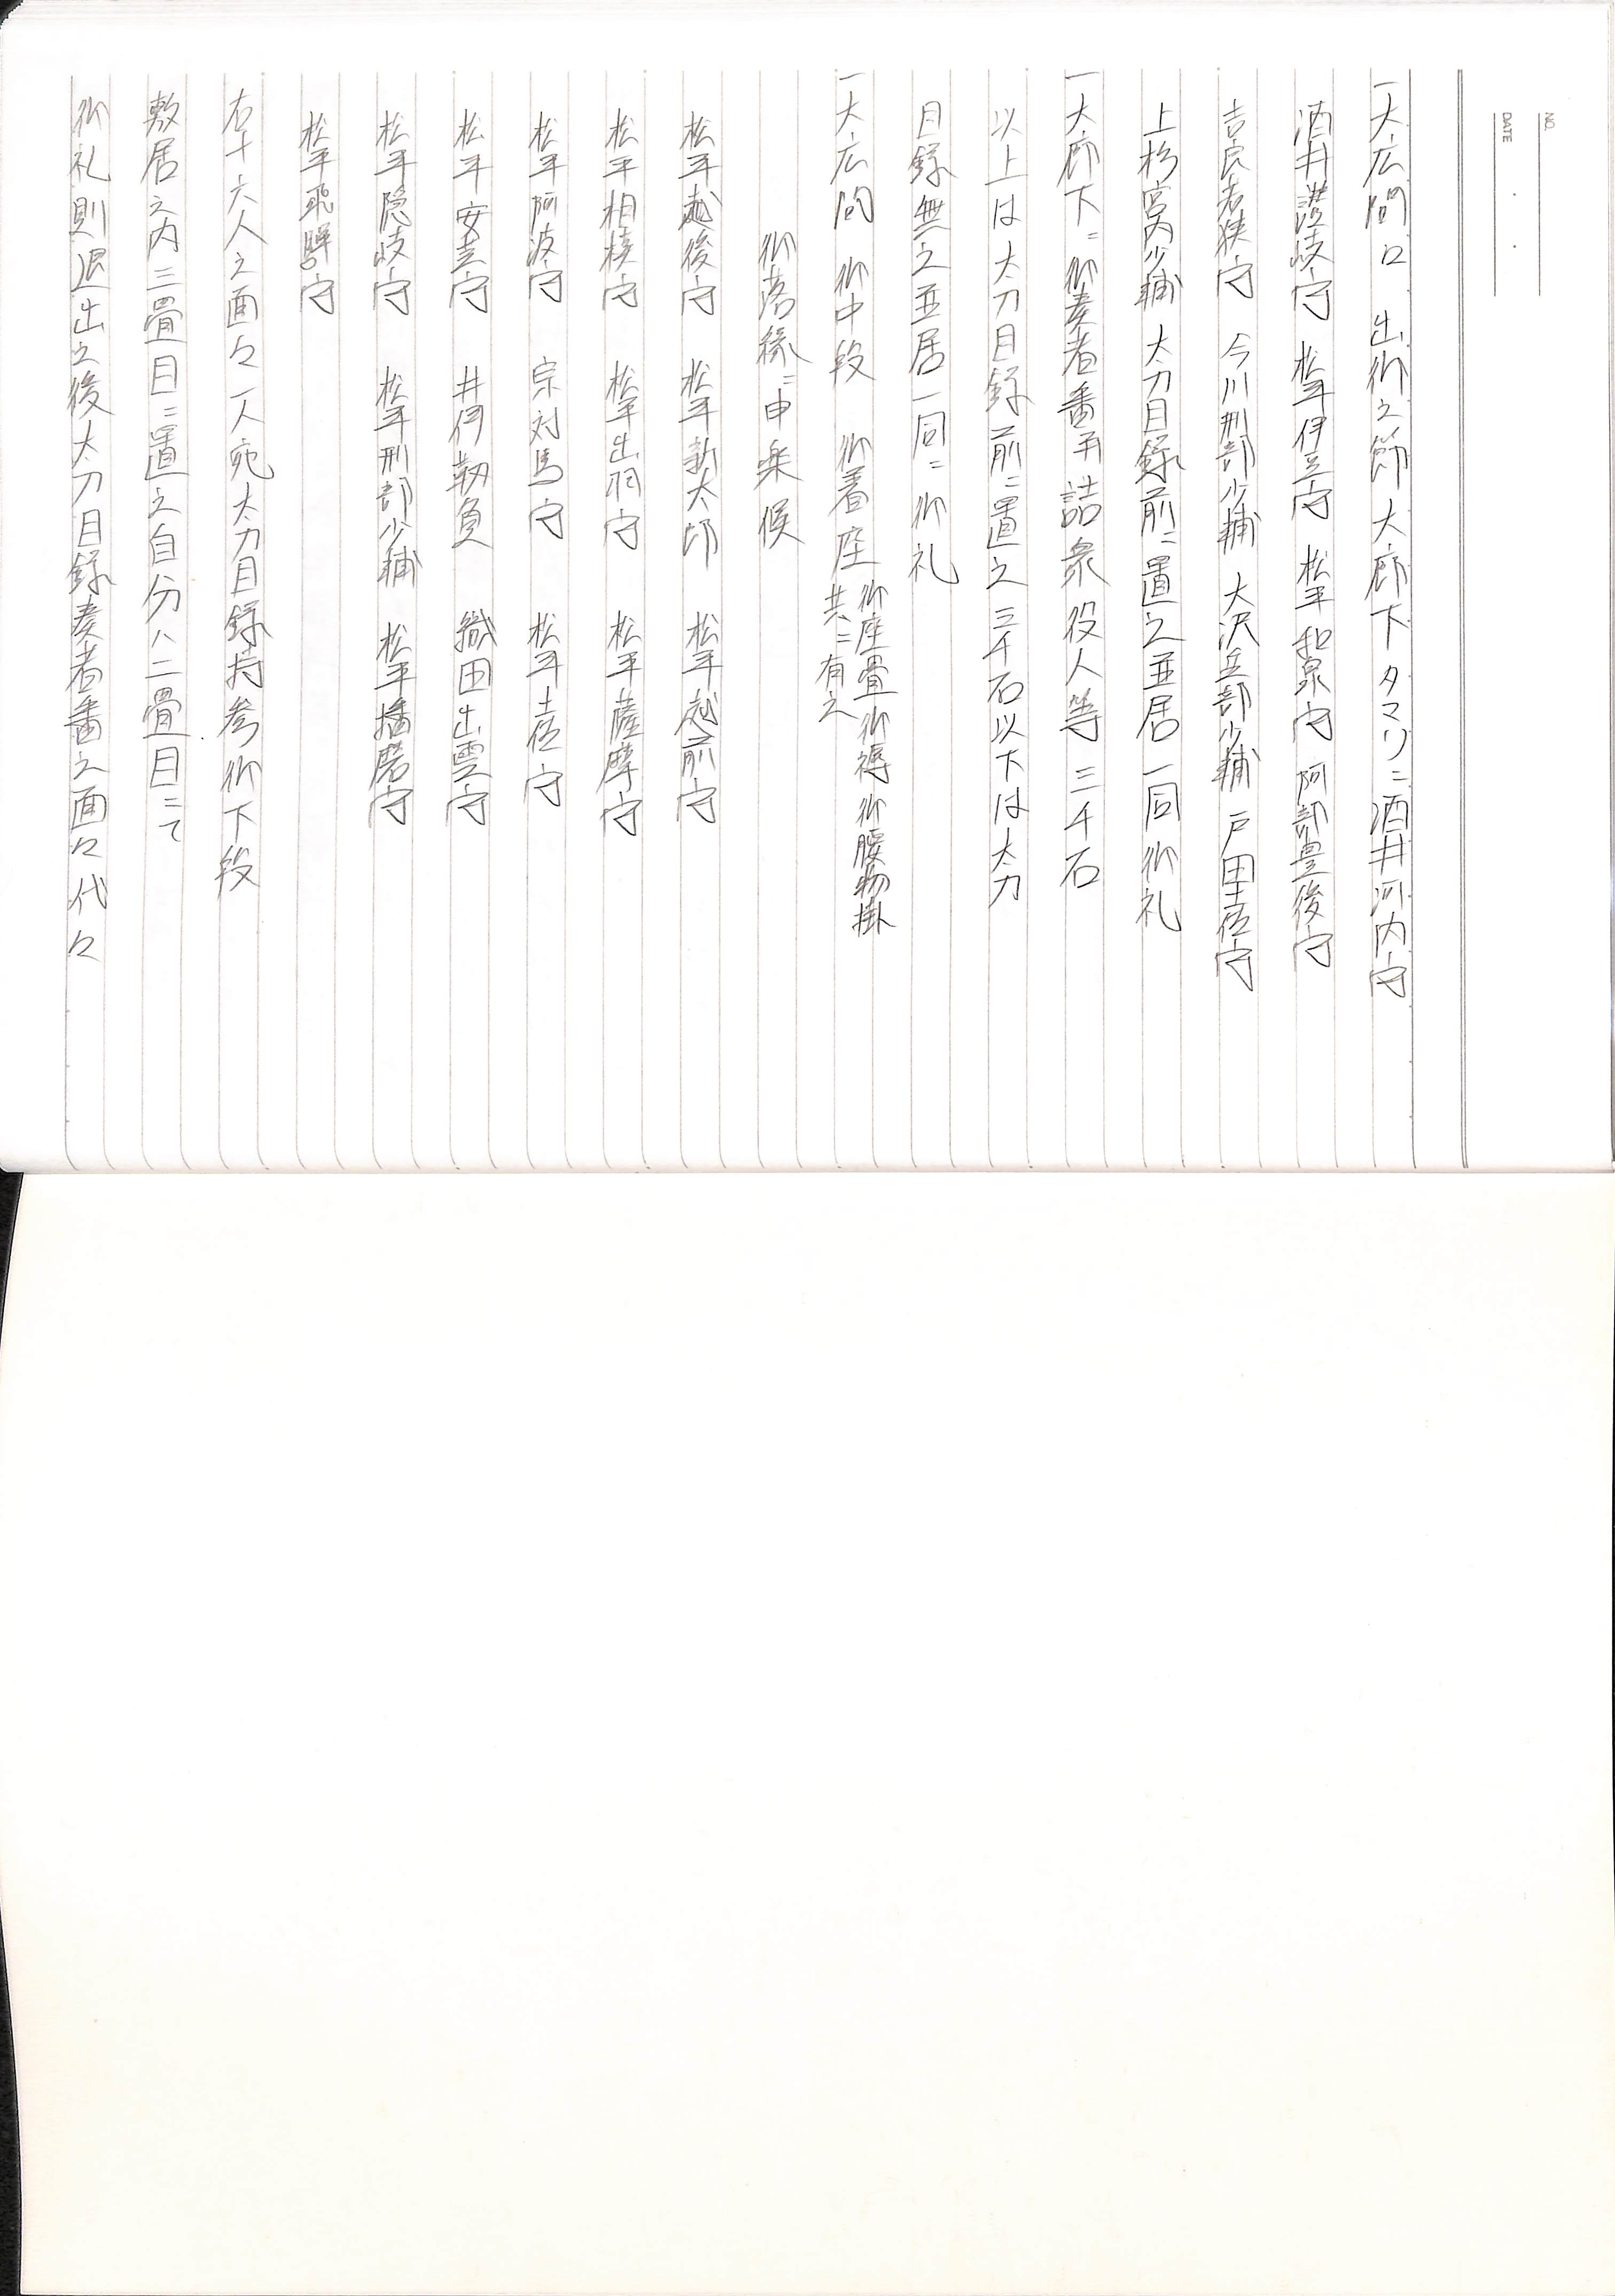 NO.
DATE
一大広間口 出御之節大廊下タマリニ酒井河内守
酒井讃岐守 松平伊豆守 松平和泉守 阿部豊後守
吉良若狭守 今川刑部少輔 大沢兵部少輔 戸田土佐守
上杉宮内少輔 太刀目録前ニ置之並居一同御礼
一大廊下ニ御奏者番并詰衆役人等 三千石
以上は太刀目録前ニ置之 三千石以下は太刀
目録無之並居一同ニ御礼
一大広間 御中段 御着座 御座畳御褥御腰物掛
共ニ有之
御落縁ニ申楽候
松平越後守 松平新太郎 松平越前守
松平相模守 松平出羽守 松平薩摩守
松平阿波守 宗対馬守 松平土佐守
松平安芸守 井伊靱負 織田出雲守
松平隠岐守 松平刑部少輔 松平播磨守
松平飛騨守
右十六人之面々一人宛太刀目録持参御下段
敷居之内三畳目ニ置之自分ハ二畳目ニて
御礼則退出之後太刀目録奏者番之面々代々